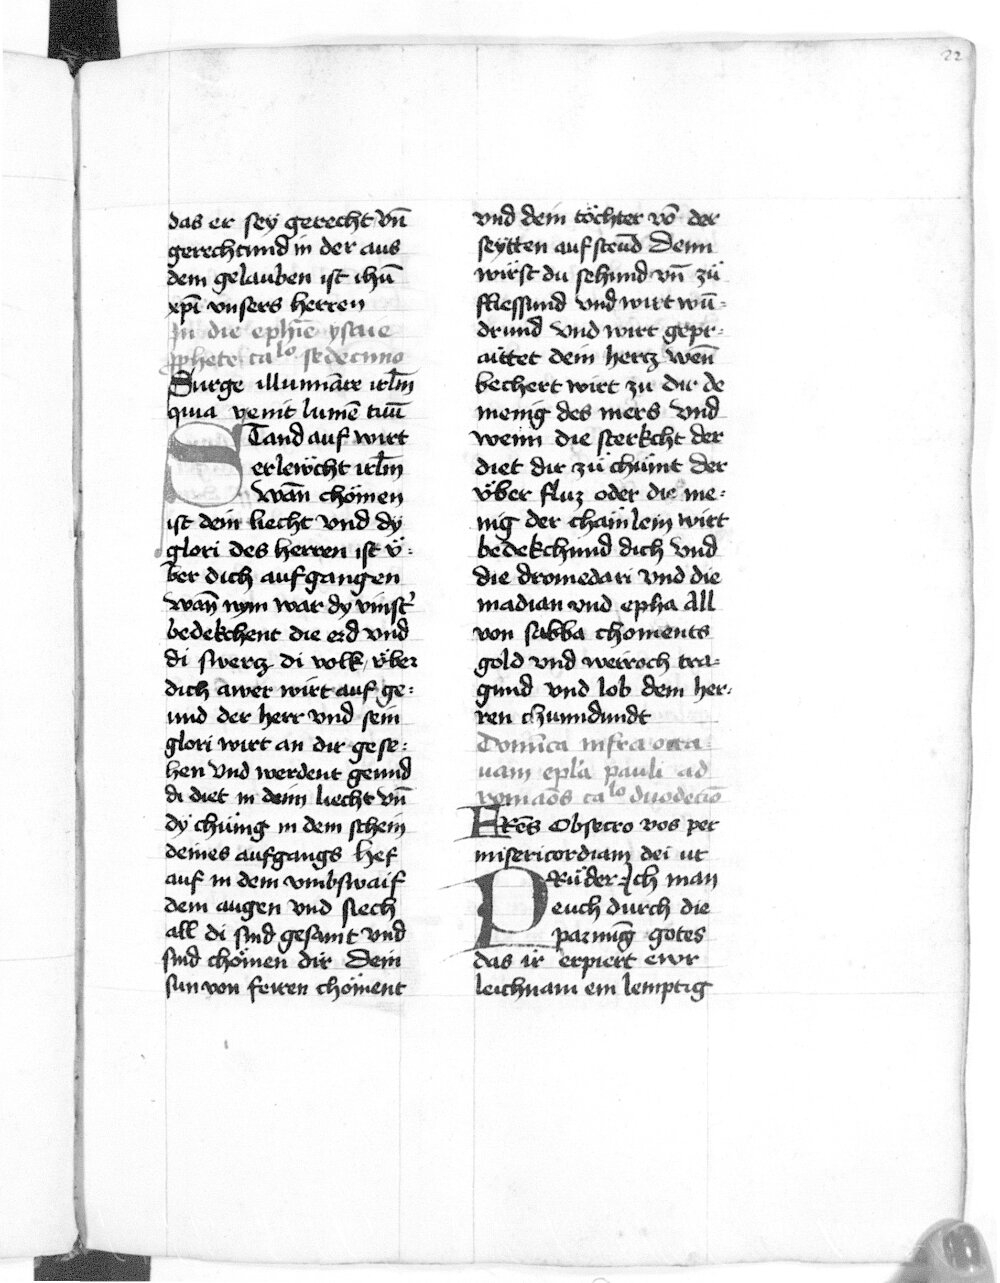 22
das er sey gerecht vn̄
gerechtund in der aus
dem gelauben ist ihū
xp̄i vnsers herren
In die ephīe ysaie
p̱phete ca lo sedecimo
Surge illuminare irl̄m
quia venit lumē tuū
STand auf wirt
erlewcht irl̄m
Wan̄ chömen
ist dein liecht vnd dy
glori des herren ist v̈:
ber dich aufgangen
Wan̄ nym war dy vinst'
bedekchent die erd vnd
di swercz di volk v̈ber
dich awer wirt auf ge:
und der herr vnd sein
glori wirt an dir gese:
hen vnd werdent geund
di diet in deim liecht vn̄
dy chünig in dem schein
deines aufgangs Hef
auf in dem vmbswaif
dein augen vnd siech
all di sind gesamt vnd
sind chömen dir Dein
sun von ferren chöment
vnd dein töchter vō der
seytten aufstend Denn
wirst du sehund vn̄ zü
fliessund vnd wirt wū:
drund vnd wirt gepr:
aittet dein hercz wen̄
bechert wirt zu dir de
menig des mers vnd
wenn die sterkcht der
diet dir zü chümt der
v̈ber fluz oder die me:
nig der chämlein wirt
bedekchund dich vnd
die dromedari vnd die
madian vnd epha All
von sabba choments
gold vnd weiroch tra:
gund vnd lob dem her:
ren chunndundt
Domīca infra octa
uam epl̄a pauli ad
romaōs ca lo duodecīo
FRēs Obsecro vos per
misericordiam dei ut
PRüder Ich man
euch durch die
parmig gotes
das ir erpiert ewr
leichnam ein lemptig